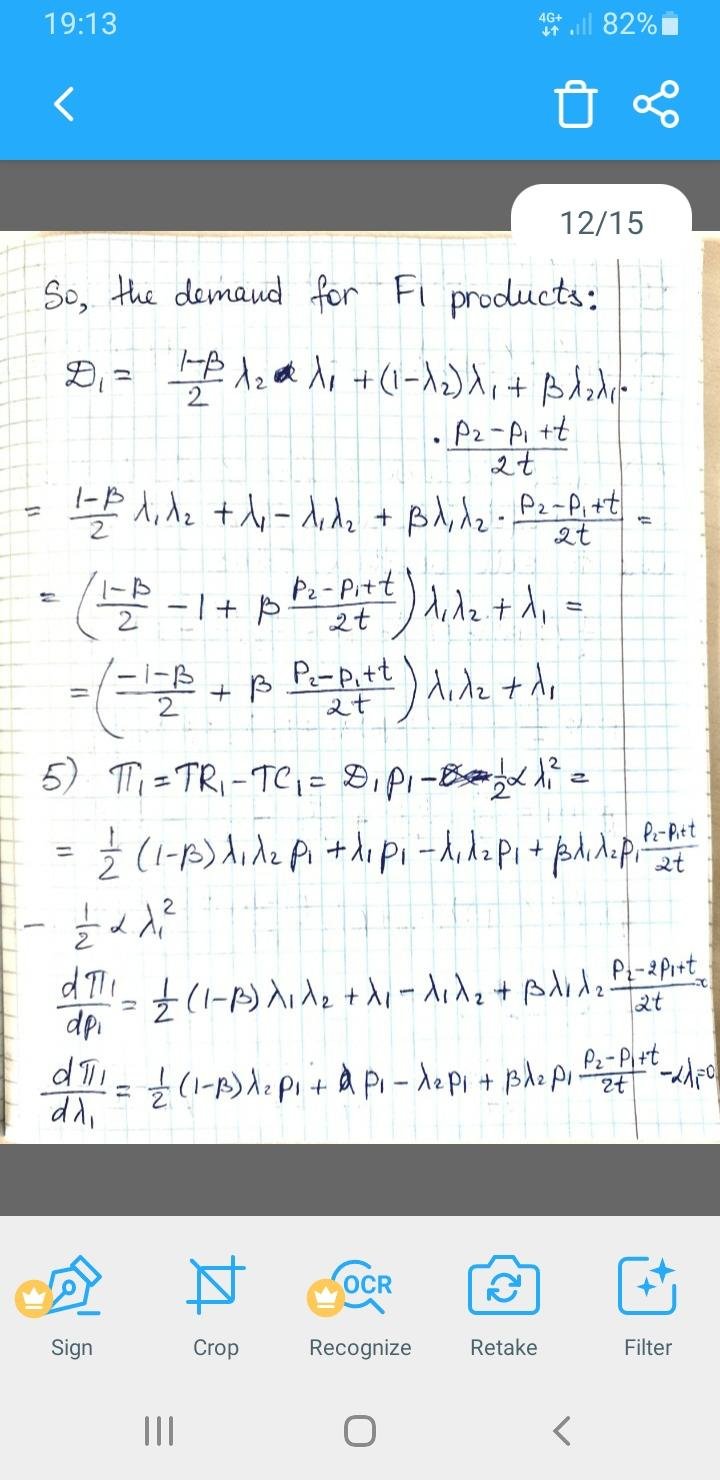 19:13 4G+ 82%
12/15
So, the demand for F1 products:
D₁ = (1-β)/2 λ₂ λ₁ + (1-λ₂)λ₁ + βλ₂λ₁·
· (p₂-p₁+t)/2t
= (1-β)/2 λ₁λ₂ + λ₁ - λ₁λ₂ + βλ₁λ₂ · (p₂-p₁+t)/2t =
= ((1-β)/2 - 1 + β (p₂-p₁+t)/2t) λ₁λ₂ + λ₁ =
= ((-1-β)/2 + β (p₂-p₁+t)/2t) λ₁λ₂ + λ₁
5) π₁ = TR₁ - TC₁ = D₁p₁ - ½αλ₁² =
= ½ (1-β)λ₁λ₂p₁ + λ₁p₁ - λ₁λ₂p₁ + βλ₁λ₂p₁ (p₂-p₁+t)/2t
- ½ αλ₁²
dπ₁/dp₁ = ½ (1-β)λ₁λ₂ + λ₁ - λ₁λ₂ + βλ₁λ₂ (p₂-2p₁+t)/2t =
dπ₁/dλ₁ = ½ (1-β)λ₂p₁ + p₁ - λ₂p₁ + βλ₂p₁ (p₂-p₁+t)/2t - αλ₁=0
Sign Crop OCR Recognize Retake Filter